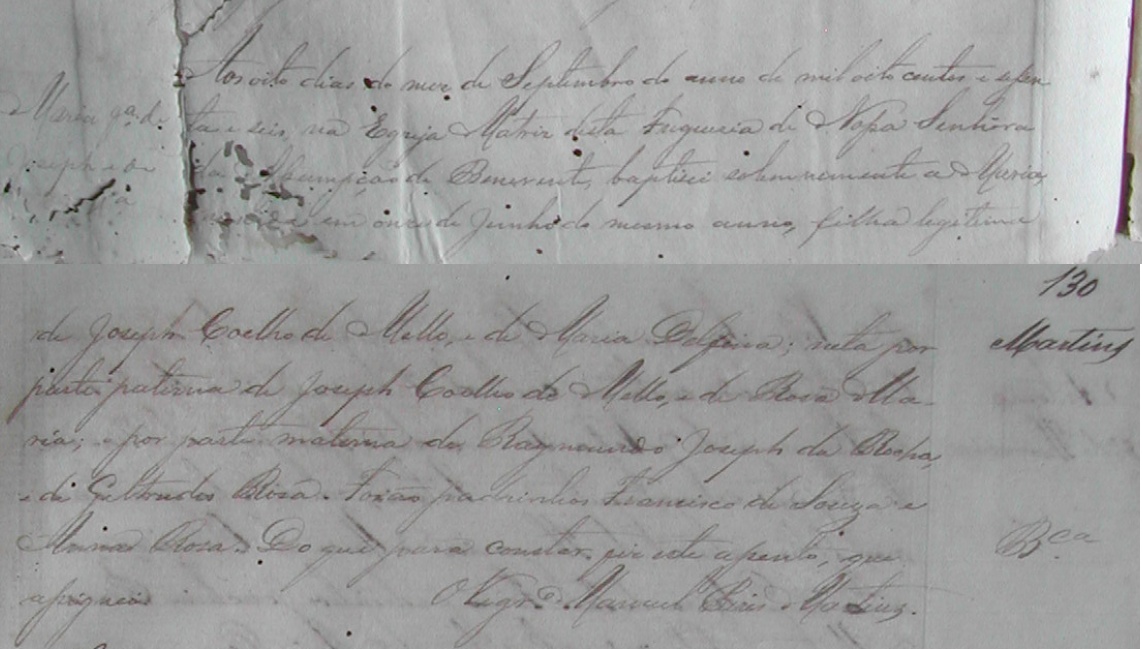 Aos oito dias do mez de Septembro do anno de mil oito centos e sesen
Maria fa. de
ta e seis, na Egreja Matriz desta Freguesia de Nossa Senhora
Joseph
da Assumpção de Benevente, baptisei solemnemente a Maria,
nascida em onze de Junho do mesmo anno, filha legitima
130
Martins
de Joseph Coelho de Mello, e de Maria Delfina; neta por
parte paterna de Joseph Coelho de Mello, e de Rosa Ma-
ria; e por parte materna de Raymundo Joseph da Rocha,
e de Geltrudes Rosa. Forão padrinhos Francisco de Souza e
Anna Rosa. Do que para constar, fiz este assento, que
Bca
assignei. O Vigro. Manuel Pires Martins.